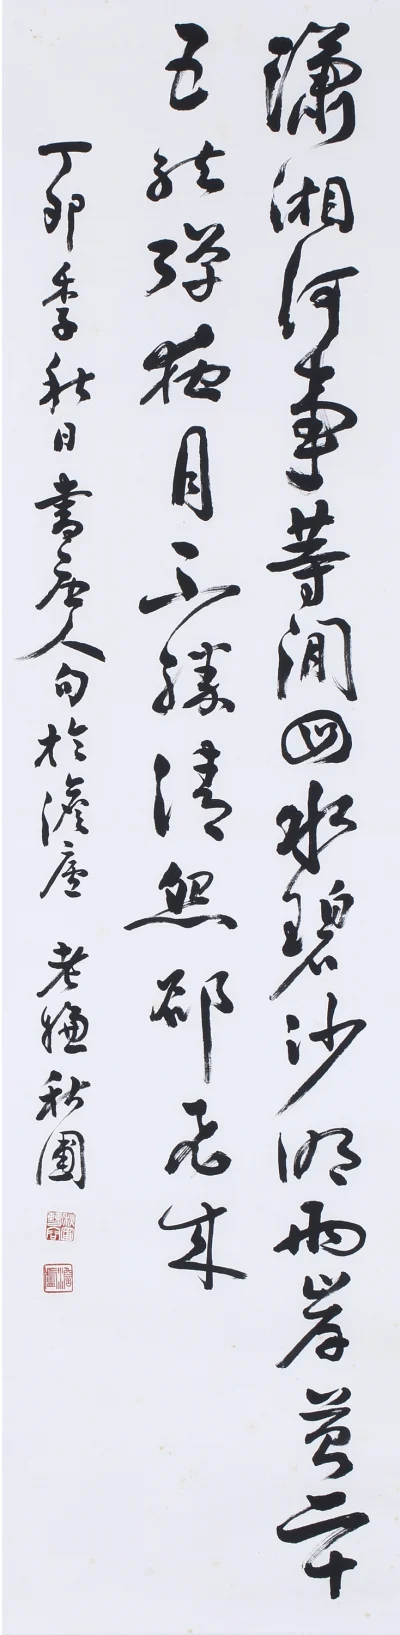 瀟湘何事等閒回水碧沙明兩岸苔二十
五絃彈夜月不勝清怨卻飛來
丁卯季秋日書唐人句於澹廬 老嫌秋圃
澹廬